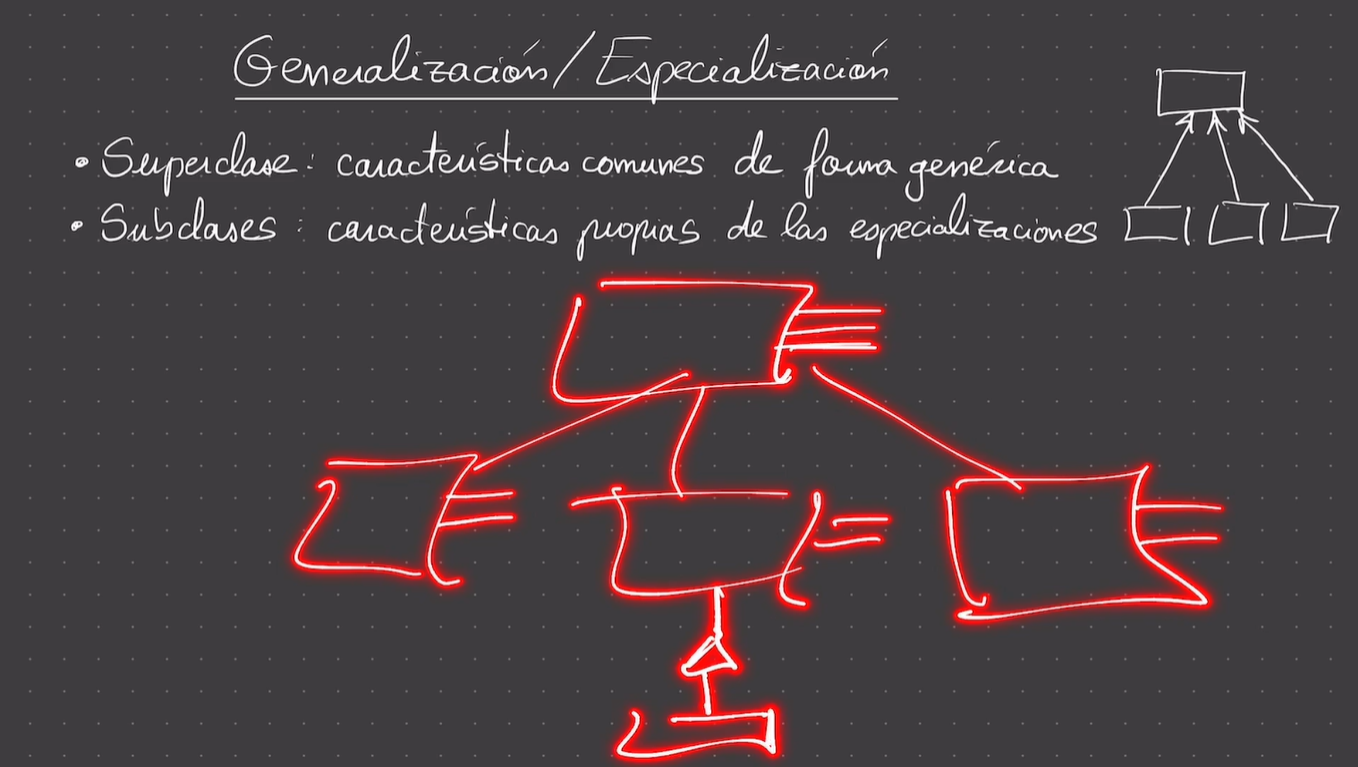 Generalización/Especialización
• Superclase: características comunes de forma genérica
• Subclases: características propias de las especializaciones